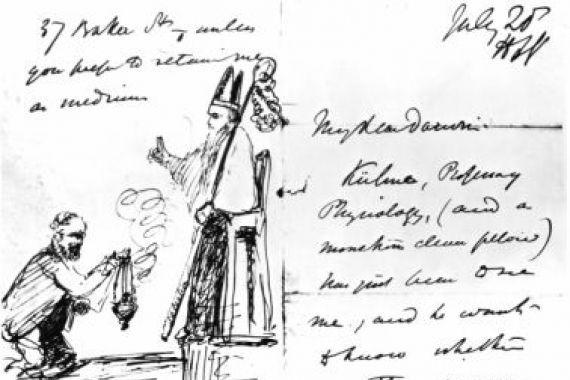 37 Baker St, unless
you prefer to retain me
as medium
July 20
My dear Darwin
Kühne, Prof of
Physiology, (and a
monstrous clever fellow)
has just been to see
me, and he wants
to know whether